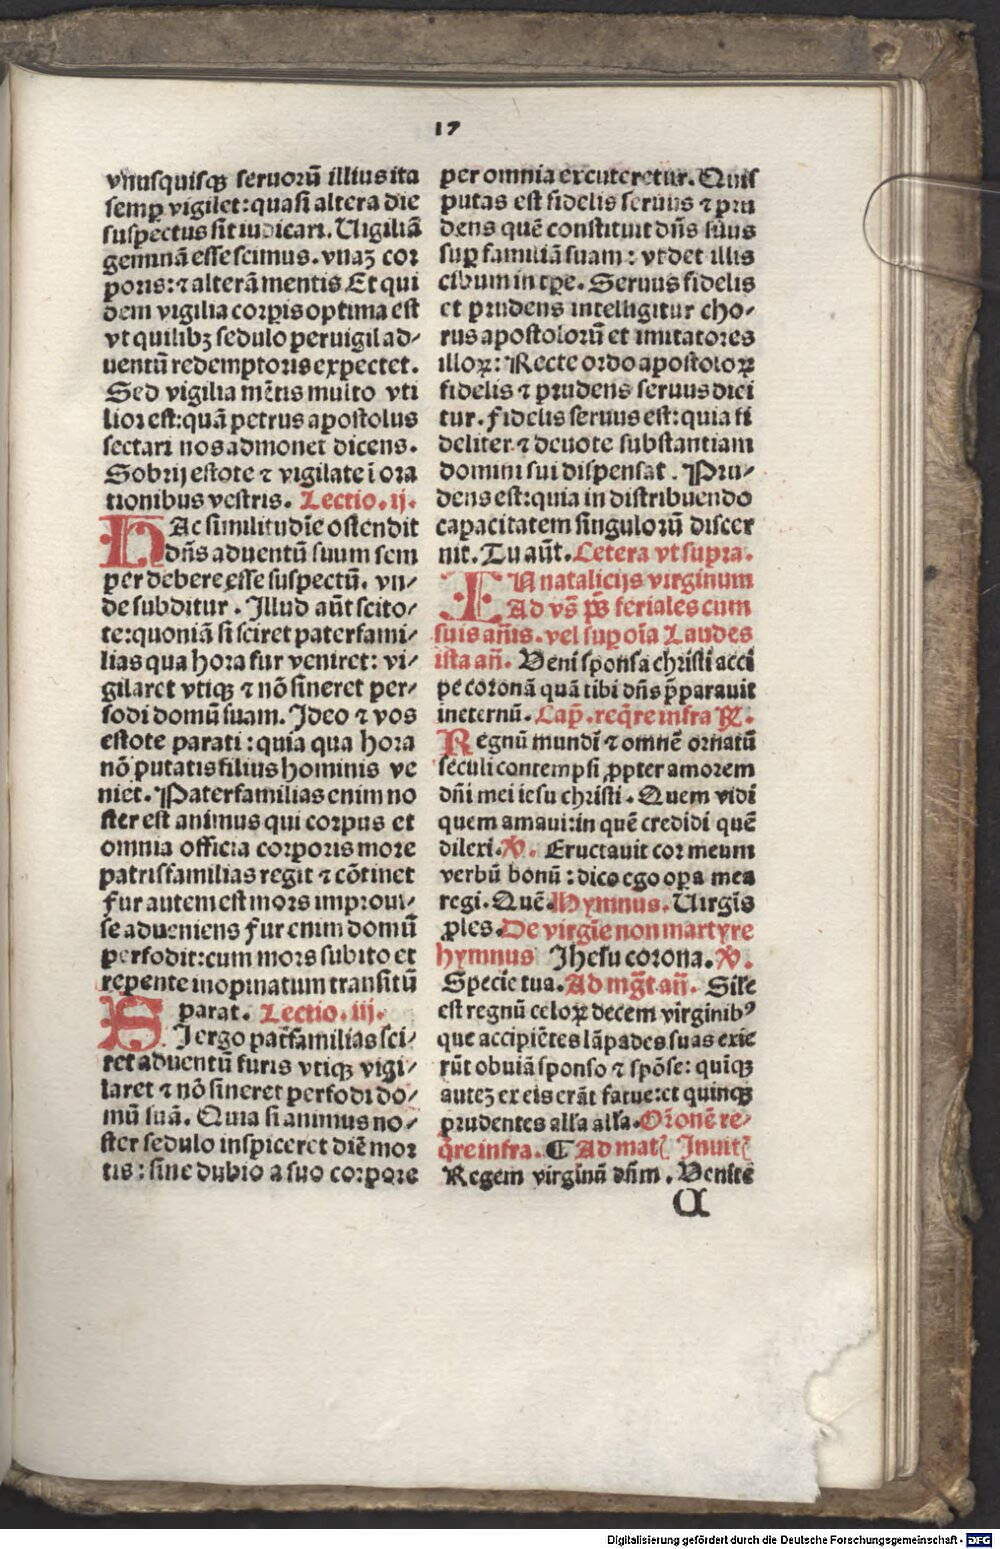 17
vnusquisqꝫ seruorū illius ita
semꝑ vigilet: quasi altera die
suspectus sit iudicari. Uigiliā
geminā esse scimus. vnaꝫ cor
poris: ⁊ alterā mentis Et qui
dem vigilia corꝑis optima est
vt quilibꝫ sedulo peruigil ad-
uentū redemptoris expectet.
Sed vigilia mētis multo vti
lior est: quā petrus apostolus
sectari nos admonet dicens.
Sobrij estote ⁊ vigilate ī ora
tionibus vestris. Lectio. ij.
HAc similitudīe ostendit
dn̄s aduentū suum sem
per debere esse suspectū. vn-
de subditur. Illud aūt scito-
te: quoniā si sciret paterfami-
lias qua hora fur veniret: vi-
gilaret vtiqꝫ ⁊ nō sineret per-
fodi domū suam. Ideo ⁊ vos
estote parati: quia qua hora
nō putatis filius hominis ve
niet. Paterfamilias enim no
ster est animus qui corpus et
omnia officia corporis more
patrisfamilias regit ⁊ cōtinet
fur autem est mors improui-
se adueniens fur enim domū
perfodit: cum mors subito et
repente inopinatum transitū
parat. Lectio. iij.
SI ergo pat̄familias sci-
ret aduentū furis vtiqꝫ vigi-
laret ⁊ nō sineret perfodi do-
mū suā. Quia si animus no-
ster sedulo inspiceret diē mor
tis: sine dubio a suo corpore
per omnia excuteretur. Quis
putas est fidelis seruus ⁊ pru
dens quē constituit dn̄s suus
suꝑ familiā suam: vt det illis
cibum in tꝑe. Seruus fidelis
et prudens intelligitur cho-
rus apostolorū et imitatores
illoꝝ: Recte ordo apostoloꝝ
fidelis ⁊ prudens seruus dici
tur. fidelis seruus est: quia fi
deliter ⁊ deuote substantiam
domini sui dispensat. Pru-
dens est: quia in distribuendo
capacitatem singulorū discer
nit. Tu aūt. Cetera vt supra.
IN natalicijs virginum
Ad vs̄ ps̄ feriales cum
suis an̄is. vel suꝑ oīa Laudes
ista an̄. Veni sponsa christi acci
pe coronā quā tibi dn̄s p̄parauit
in eternū. Cap̄. req̄re infra ℟.
Regnū mundī ⁊ omnē ornatū
seculi contempsi ꝓpter amorem
dn̄i mei iesu christi. Quem vidi
quem amaui: in quē credidi quē
dilexi. ℣. Eructauit cor meum
verbū bonū: dico ego oꝑa mea
regi. Quē. Hymnus. Uirgīs
ꝓles. De virgīe non martyre
hymnus Jhesu corona. ℣.
Specie tua. Ad mg̅t an̄. Sīle
est regnū celoꝝ decem virginibꝰ
que accipiētes lāpades suas exie
rūt obuiā sponso ⁊ spōse: quīqꝫ
auteꝫ ex eis erāt fatue: et quinqꝫ
prudentes all̄a all̄a. Or̄onē re-
q̄re infra. ¶ Ad mat̄. Inuit̄
Regem virginū dn̄m. Venite
a
Digitalisierung gefördert durch die Deutsche Forschungsgemeinschaft - DFG